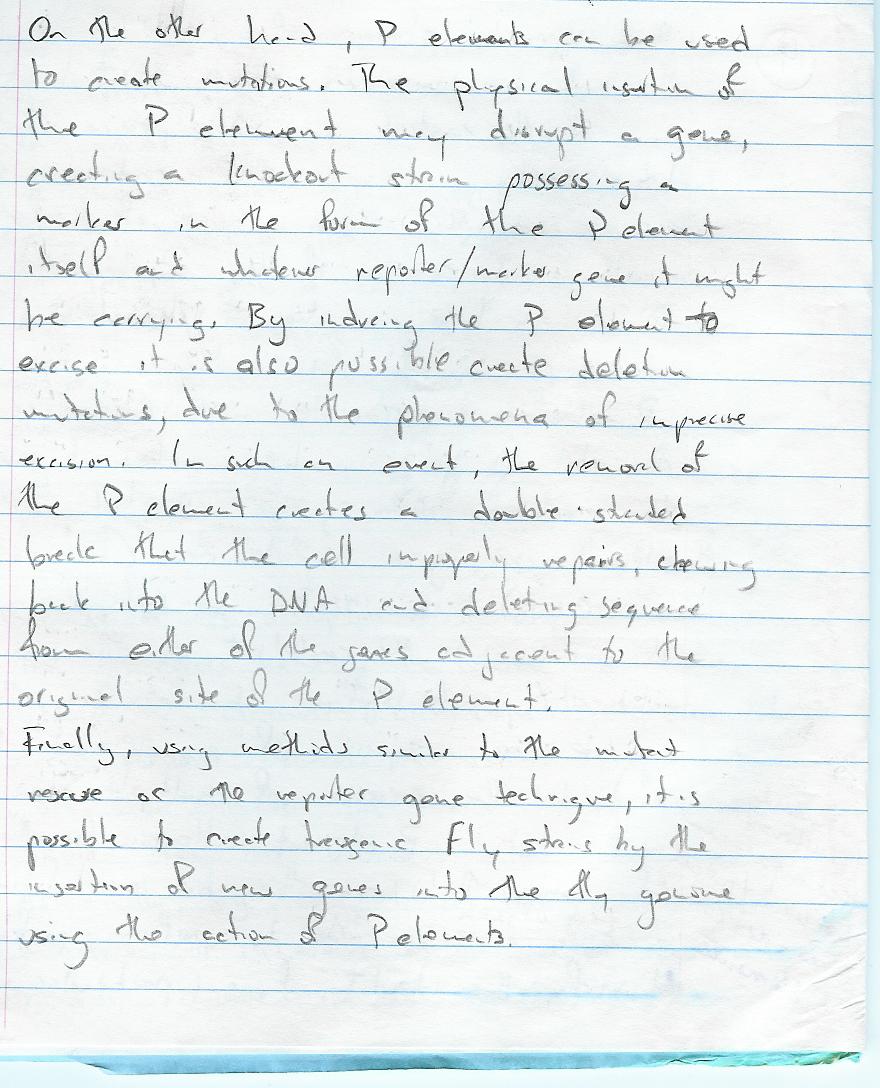 On the other hand, P elements can be used
to create mutations. The physical insertion of
the P element may disrupt a gene,
creating a knockout strain possessing a
marker in the form of the P element
itself and whatever reporter/marker gene it might
be carrying. By inducing the P element to
excise it is also possible create deletion
mutations, due to the phenomena of imprecise
excision. In such an event, the removal of
the P element creates a double-stranded
break that the cell improperly repairs, chewing
back into the DNA and deleting sequence
from either of the genes adjacent to the
original site of the P element.
Finally, using methods similar to the mutant
rescue or the reporter gene technique, it is
possible to create transgenic fly strains by the
insertion of new genes into the fly genome
using the action of P elements.